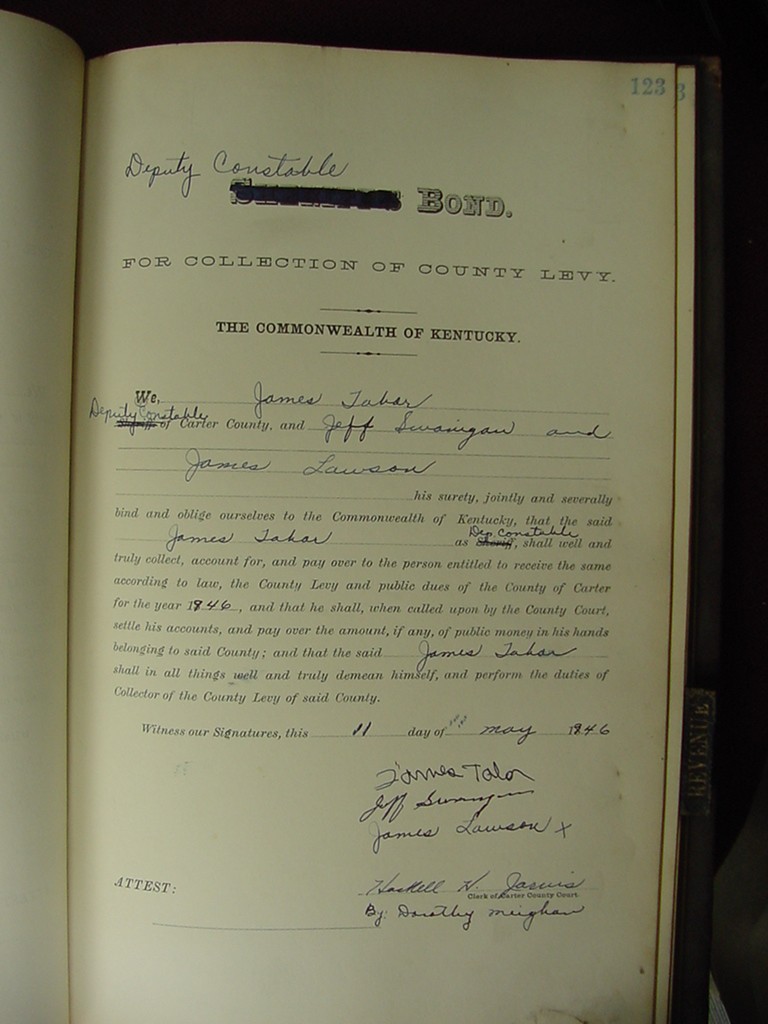 123
Deputy Constable
BOND.
FOR COLLECTION OF COUNTY LEVY.
THE COMMONWEALTH OF KENTUCKY.
We, James Tabar
Deputy Constable
Sheriff of Carter County, and Jeff Swanigan and
James Lawson
his surety, jointly and severally
bind and oblige ourselves to the Commonwealth of Kentucky, that the said
Dep. Constable
James Tabar as Sheriff, shall well and
truly collect, account for, and pay over to the person entitled to receive the same
according to law, the County Levy and public dues of the County of Carter
for the year 1946, and that he shall, when called upon by the County Court,
settle his accounts, and pay over the amount, if any, of public money in his hands
belonging to said County; and that the said James Tabar
shall in all things well and truly demean himself, and perform the duties of
Collector of the County Levy of said County.
Witness our Signatures, this 11 day of may 1946
James
Jeff
James Lawson X
ATTEST: Haskell H. Jarvis
Clerk of Carter County Court
By: Dorothy Meighan
REVENUE